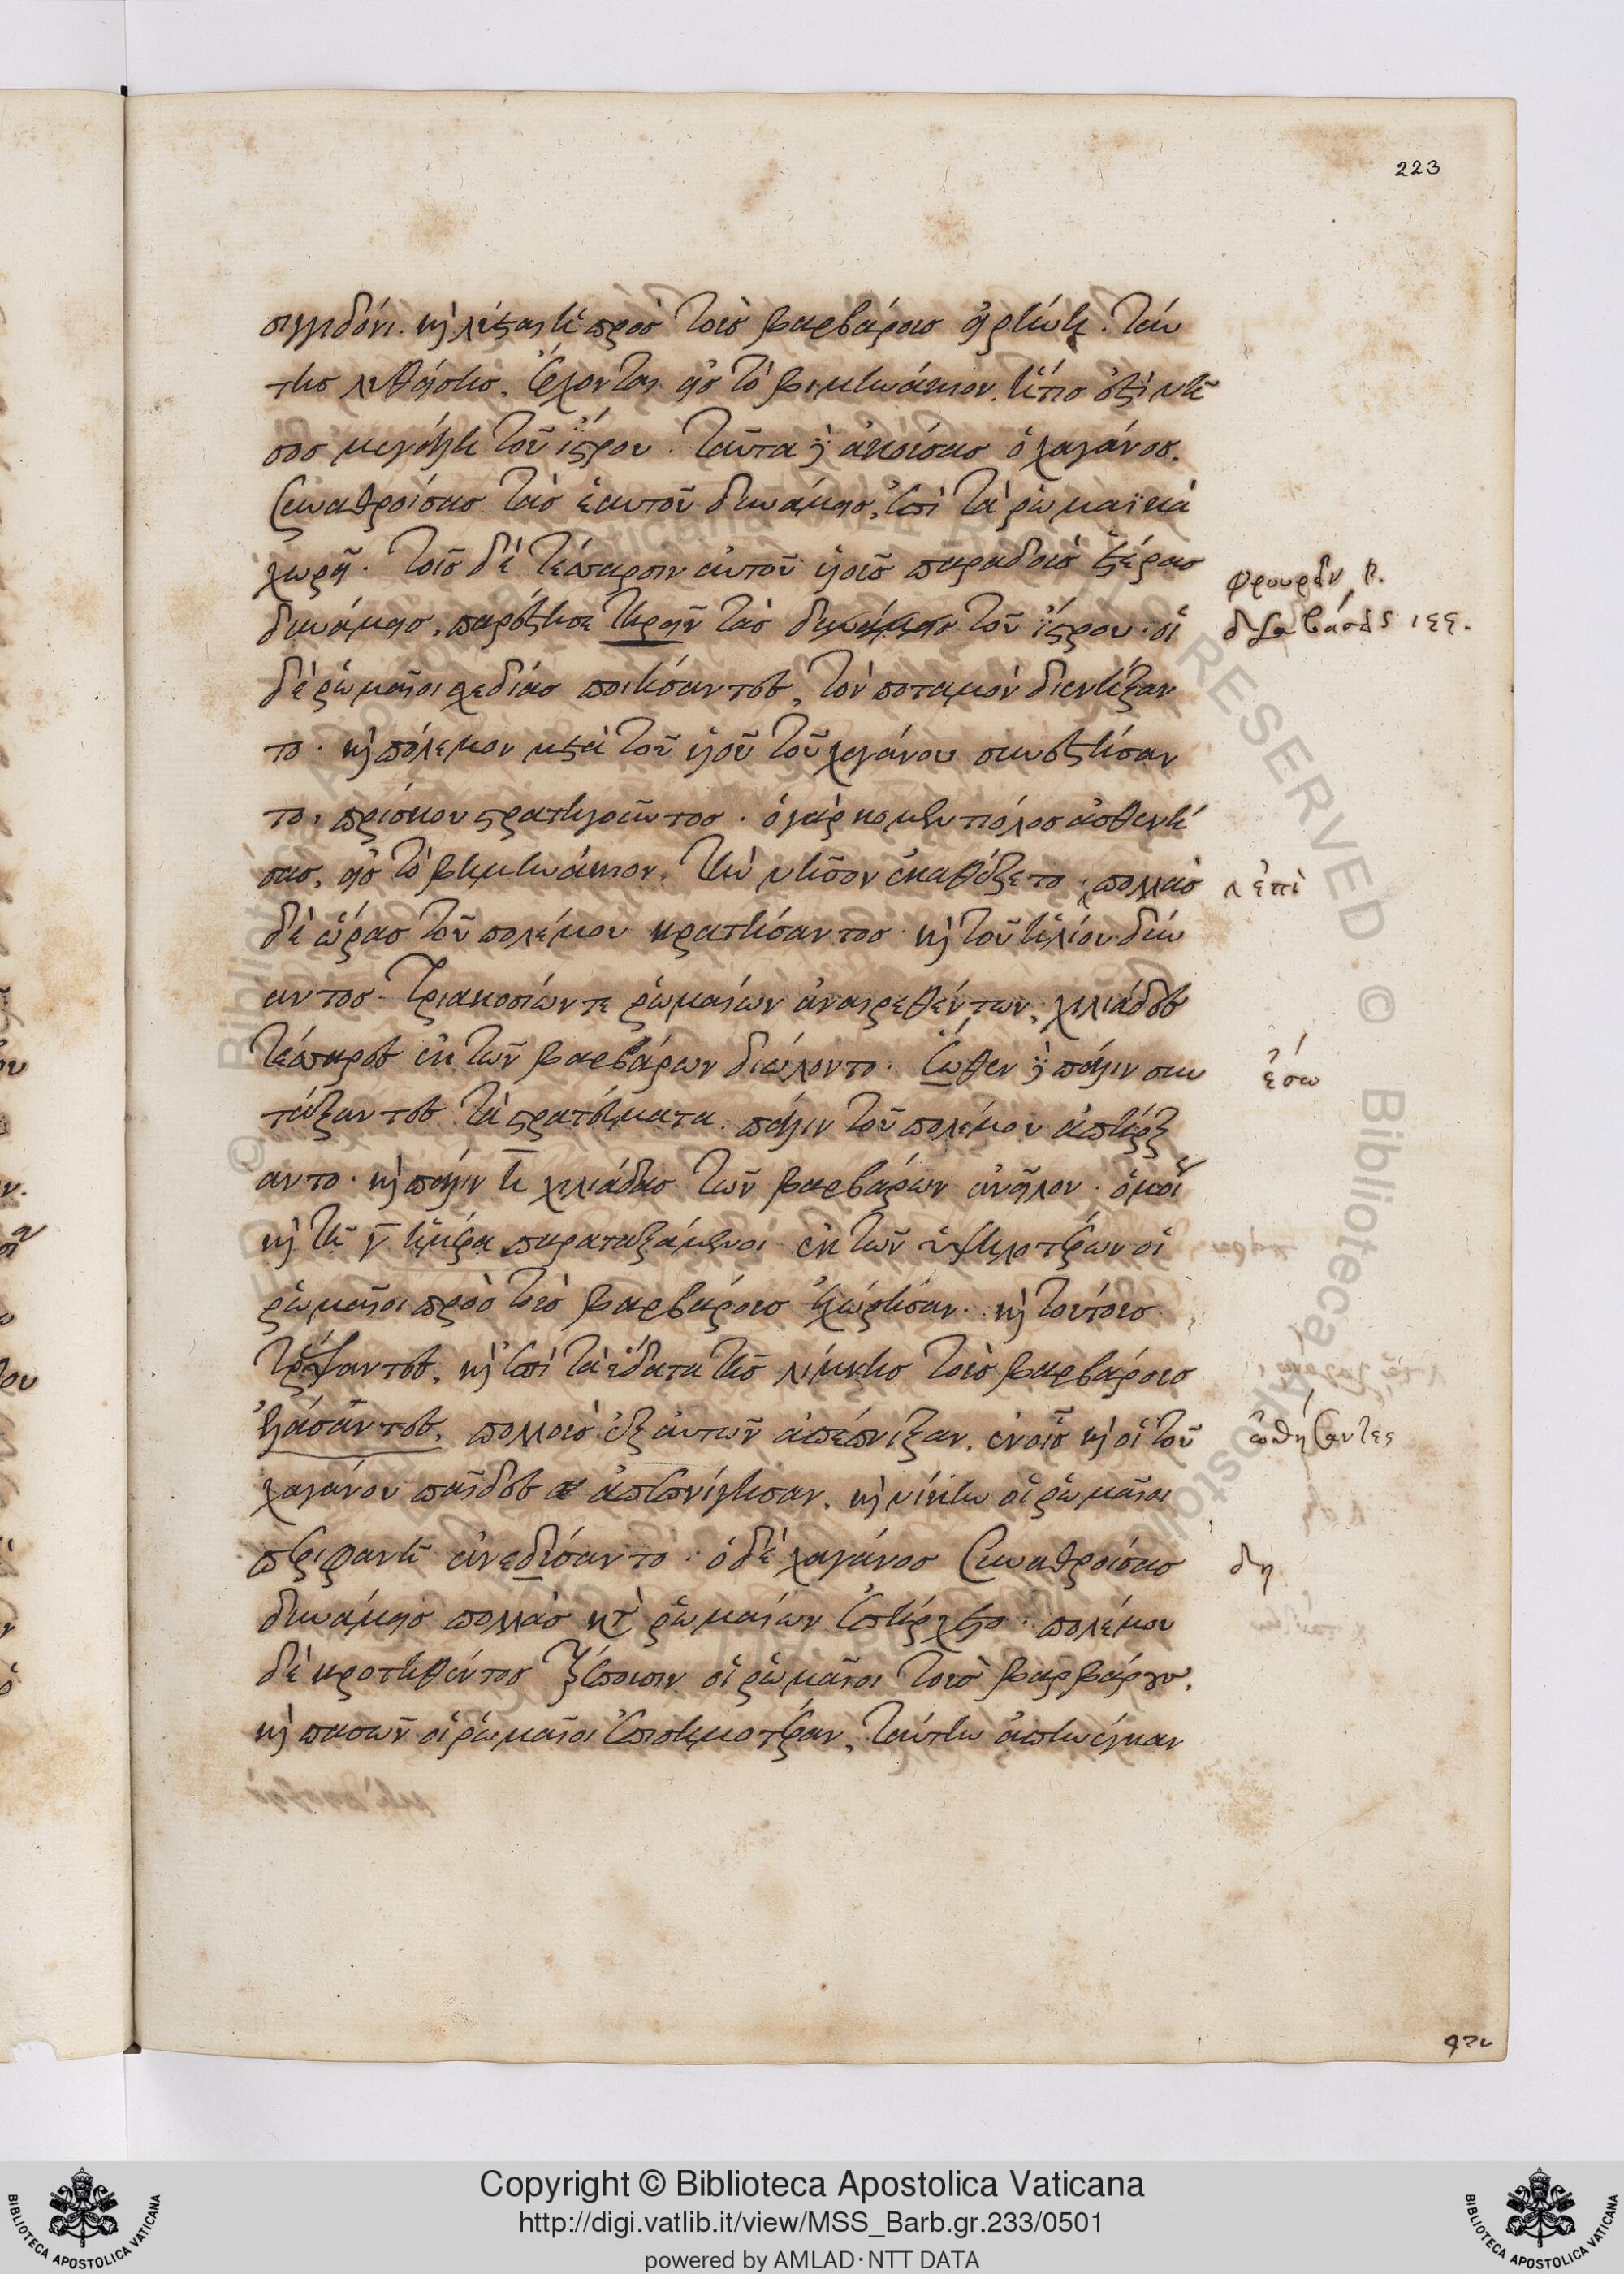 223
σιγγιδόνι. καὶ λύεται ἡ πρὸς τοὺς βαρβάρους εἰρήνη. ταύ
της λυθείσης, ἔρχονται εἰς τὸ βιμηνάκιον. ἥτις ἐστὶ νῆ
σος μεγάλη τοῦ ἴστρου. ταῦτα δὲ ἀκούσας ὁ χαγάνος,
συναθροίσας τὰς ἑαυτοῦ δυνάμεις, ἐπὶ τὰ ῥωμαϊκὰ
χωρεῖ. τοῖς δὲ τέσσαρσιν αὐτοῦ υἱοῖς παραδοὺς ἑτέρας
δυνάμεις, παρέστησε τηρεῖν τὰς δυνάμεις τοῦ ἴστρου. οἱ
φρουρεῖν Ρ.
διαβάσεις
δὲ ῥωμαῖοι σχεδίας ποιήσαντες, τὸν ποταμὸν διενήξαν
το. καὶ πόλεμον μετὰ τοῦ υἱοῦ τοῦ χαγάνου συνεστήσαν
το, πρίσκου στρατηγοῦντος. ὁ γὰρ κομεντίολος ἀσθενή
σας, εἰς τὸ βημηνάκιον, τὴν νῆσον ἐκαθέζετο. πολλὰς
ἐπὶ
δὲ ὥρας τοῦ πολέμου κρατήσαντος καὶ τοῦ ἡλίου δύν
αντος. τριακοσίων τε ῥωμαίων ἀναιρεθέντων, χιλιάδες
τέσσαρες ἐκ τῶν βαρβάρων διώλοντο. ἕωθεν δὲ πάλιν συν
ἔσω
τάξαντες τὰ στρατεύματα. πάλιν τοῦ πολέμου ἀπήρξ
αντο. καὶ πάλιν η χιλιάδας τῶν βαρβάρων ἀνεῖλον. ὁμοί
καὶ τῇ γ ἡμέρα παραταξάμενοι ἐκ τῶν ὑψηλοτέρων οἱ
ῥωμαῖοι πρὸς τοὺς βαρβάρους ἐχώρησαν. καὶ τούτους
τρέψαντες, καὶ ἐπὶ τὰ ὕδατα τῆς λίμνης τοὺς βαρβάρους
ἐλάσαντες, πολλοὺς ἐξ αὐτῶν ἀπέπνιξαν, ἐν οἷς καὶ οἱ τοῦ
ὠθήσαντες
χαγάνου παῖδες ἀπεπνίγησαν. καὶ νίκην οἱ ῥωμαῖοι
περιφανῆ ἀνεδίσαντο. ὁ δὲ χαγάνος συναθροίσας
δη
δυνάμεις πολλὰς κατὰ ῥωμαίων ἐπήρχετο. πολέμου
δὲ κροτηθέντος τρέπουσιν οἱ ῥωμαῖοι τοὺς βαρβάρους.
καὶ πασῶν οἱ ῥωμαῖοι ἐπισημοτέραν, ταύτην ἀπηνέγκαν
Copyright © Biblioteca Apostolica Vaticana
http://digi.vatlib.it/view/MSS_Barb.gr.233/0501
powered by AMLAD·NTT DATA
BIBLIOTECA APOSTOLICA VATICANA
BIBLIOTECA APOSTOLICA VATICANA